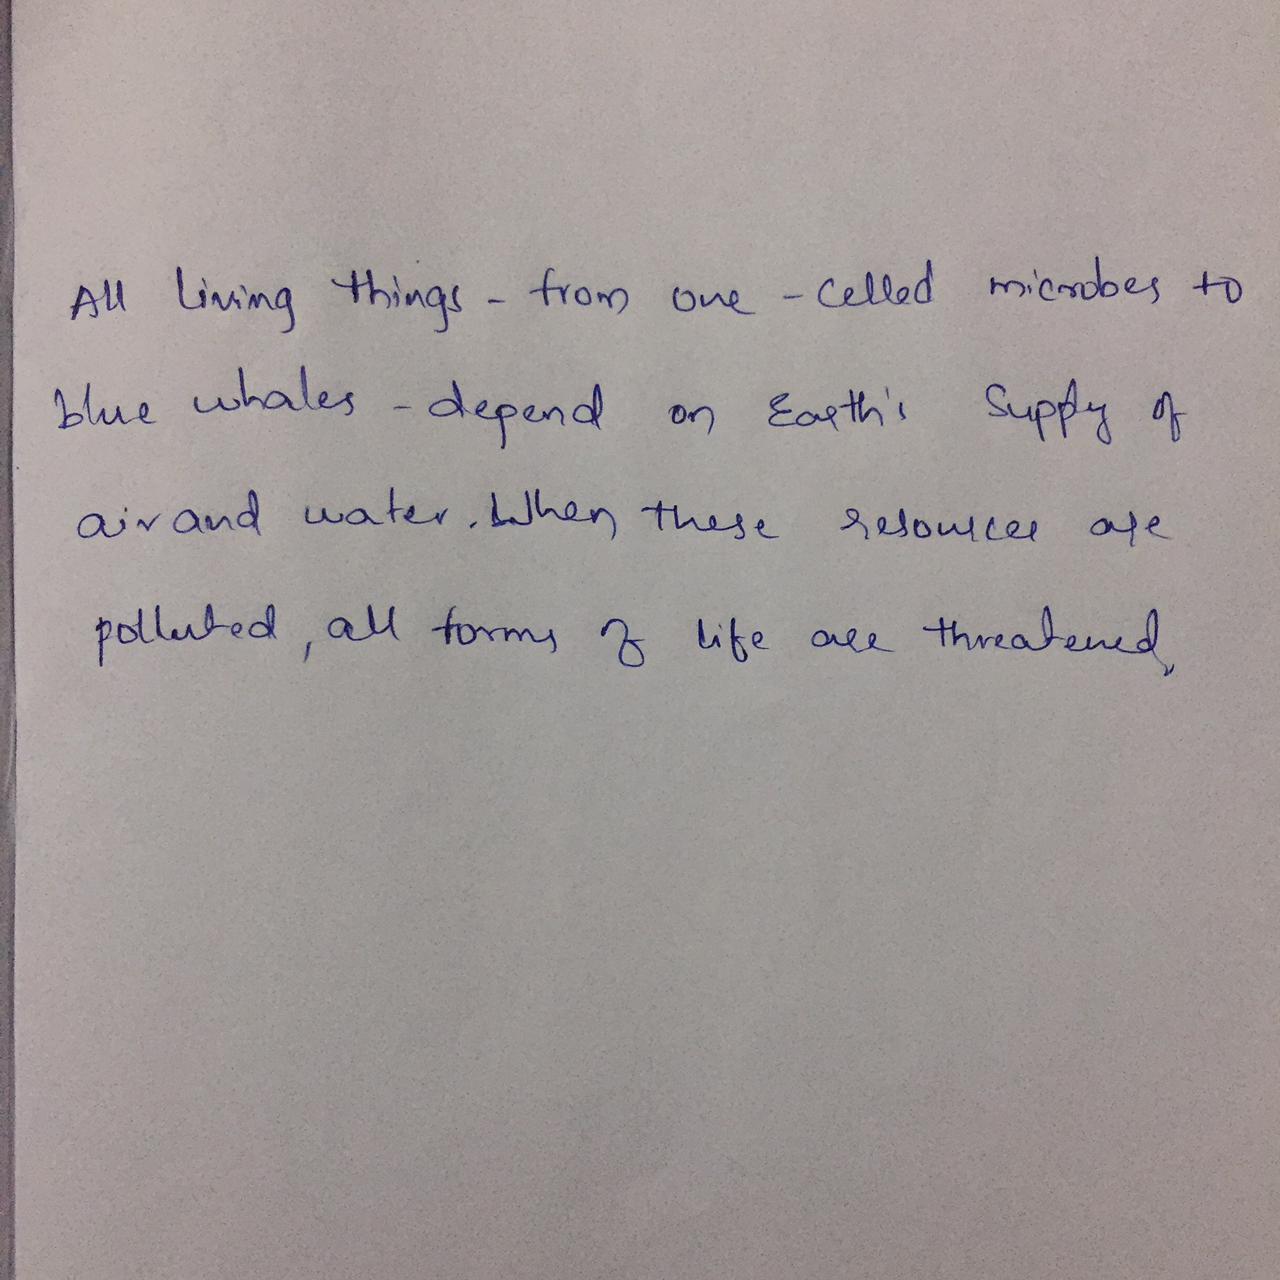 All living things - from one - celled microbes to
blue whales - depend on Earth's Supply of
air and water. When these resources are
polluted, all forms of life are threatened,